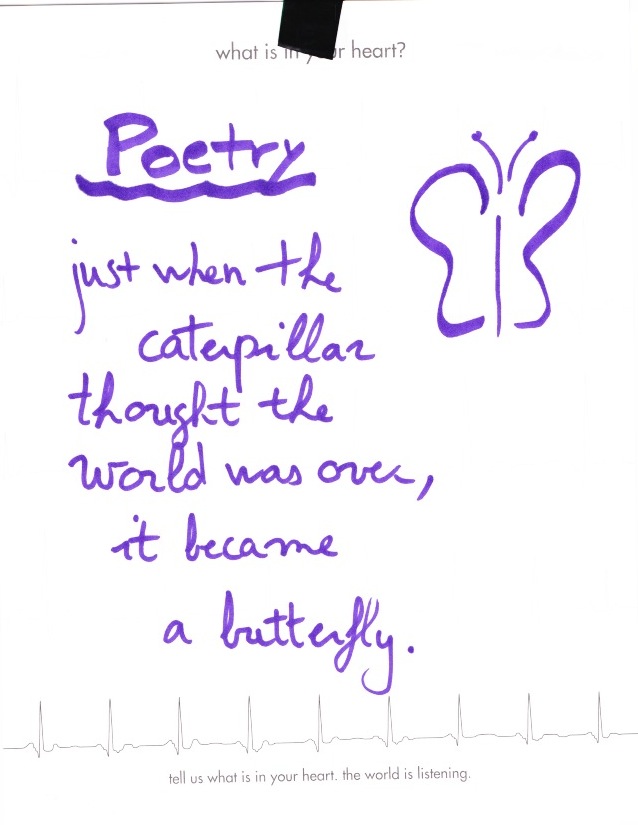 what is in your heart?
Poetry
just when the
caterpillar
thought the
world was over,
it became
a butterfly.
tell us what is in your heart. the world is listening.